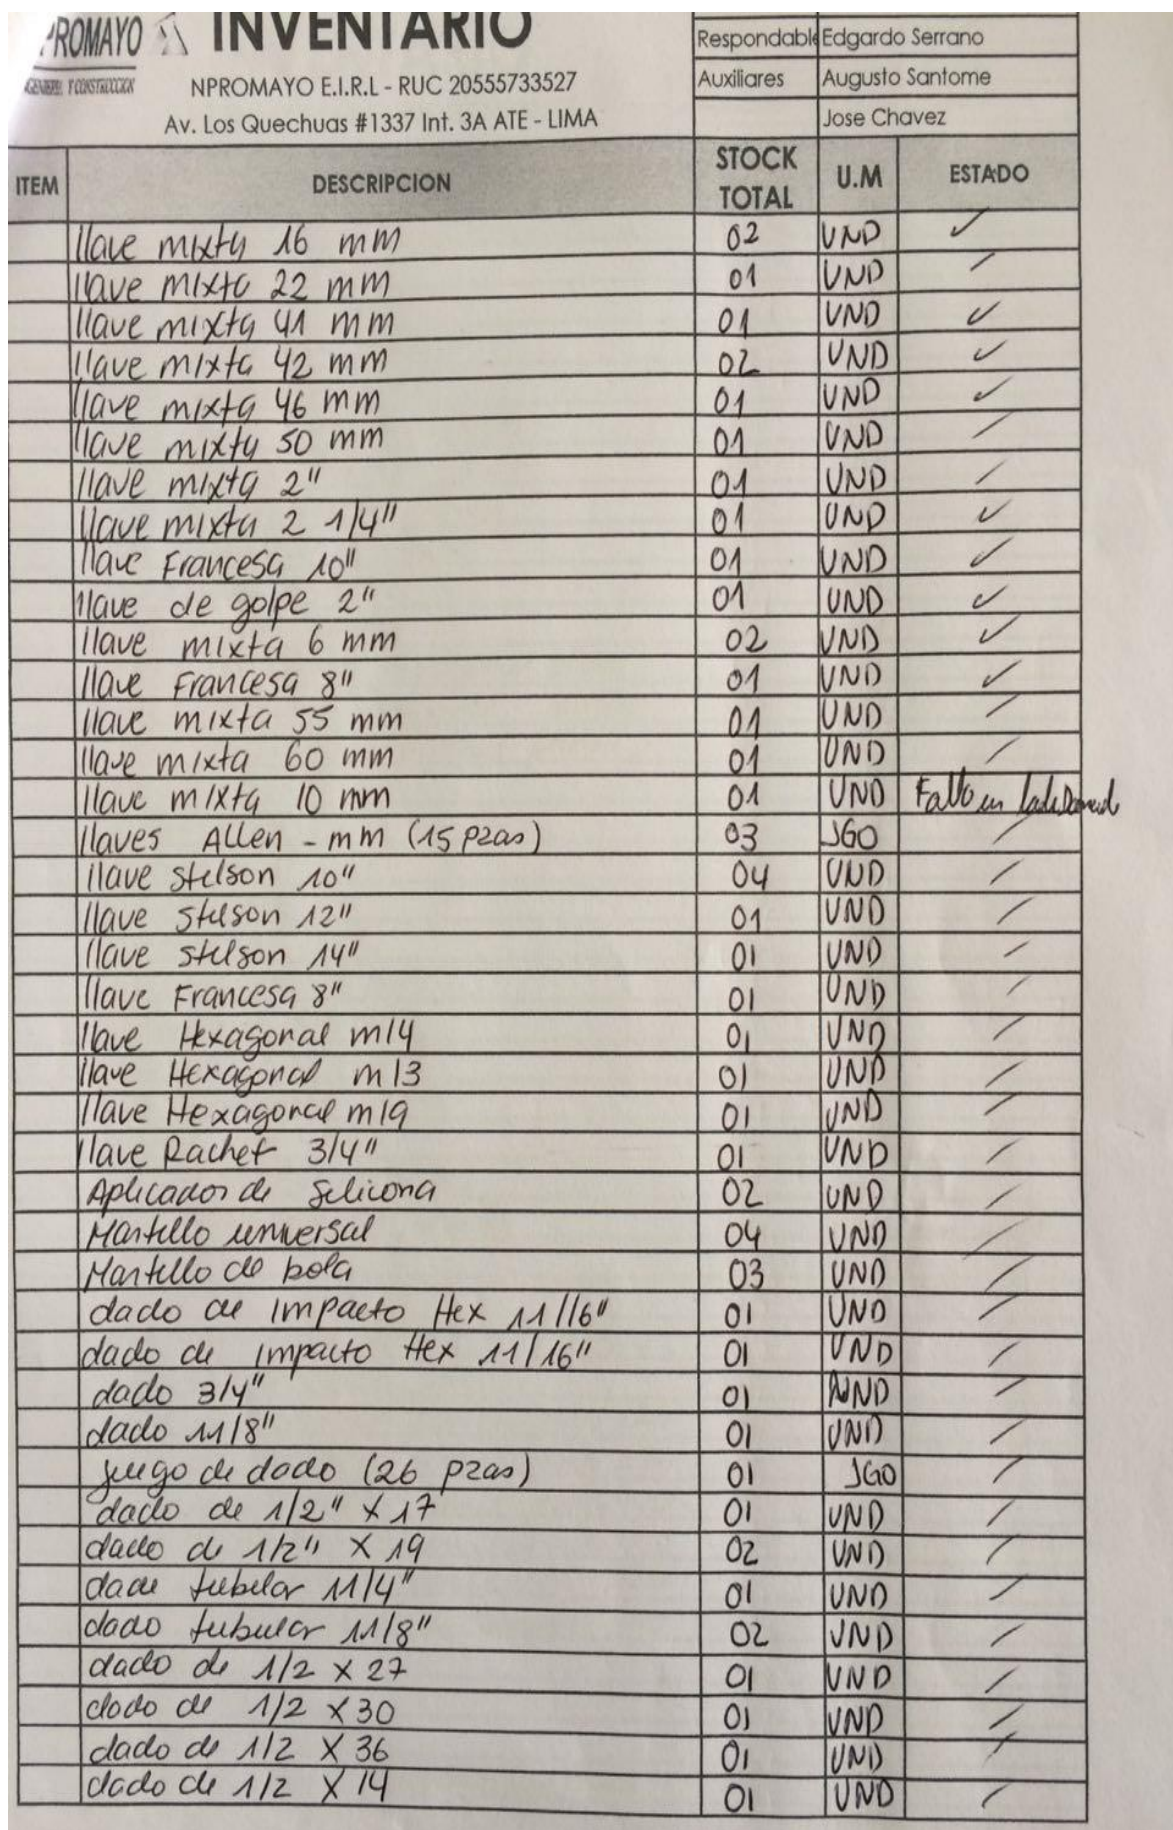 PROMAYO INVENTARIO
INGENIERIA Y CONSTRUCCION
NPROMAYO E.I.R.L - RUC 20555733527
Av. Los Quechuas #1337 Int. 3A ATE - LIMA
Respondable Edgardo Serrano
Auxiliares Augusto Santome
Jose Chavez
ITEM DESCRIPCION STOCK TOTAL U.M ESTADO
llave mixta 16 mm 02 UND ✓
llave mixta 22 mm 01 UND /
llave mixta 41 mm 01 UND ✓
llave mixta 42 mm 02 UND ✓
llave mixta 46 mm 01 UND ✓
llave mixta 50 mm 01 UND /
llave mixta 2" 01 UND /
llave mixta 2 1/4" 01 UND ✓
llave Francesa 10" 01 UND ✓
llave de golpe 2" 01 UND ✓
llave mixta 6 mm 02 UND ✓
llave Francesa 8" 01 UND ✓
llave mixta 55 mm 01 UND /
llave mixta 60 mm 01 UND /
llave mixta 10 mm 01 UND Falto un
llaves Allen - mm (15 pzas) 03 JGO /
llave stelson 10" 04 UND /
llave stelson 12" 01 UND /
llave stelson 14" 01 UND /
llave Francesa 8" 01 UND /
llave Hexagonal m14 01 UND /
llave Hexagonal m13 01 UND /
llave Hexagonal m19 01 UND /
llave Rachet 3/4" 01 UND /
Aplicador de Silicona 02 UND /
Martillo universal 04 UND /
Martillo de bola 03 UND /
dado de impacto Hex 11/16" 01 UND /
dado de impacto Hex 11/16" 01 UND /
dado 3/4" 01 UND /
dado 11/8" 01 UND /
juego de dado (26 pzas) 01 JGO /
dado de 1/2" X 17 01 UND /
dado de 1/2" X 19 02 UND /
dado tubular 11/4" 01 UND /
dado tubular 11/8" 02 UND /
dado de 1/2 X 27 01 UND /
dado de 1/2 X 30 01 UND /
dado de 1/2 X 36 01 UND /
dado de 1/2 X 14 01 UND /